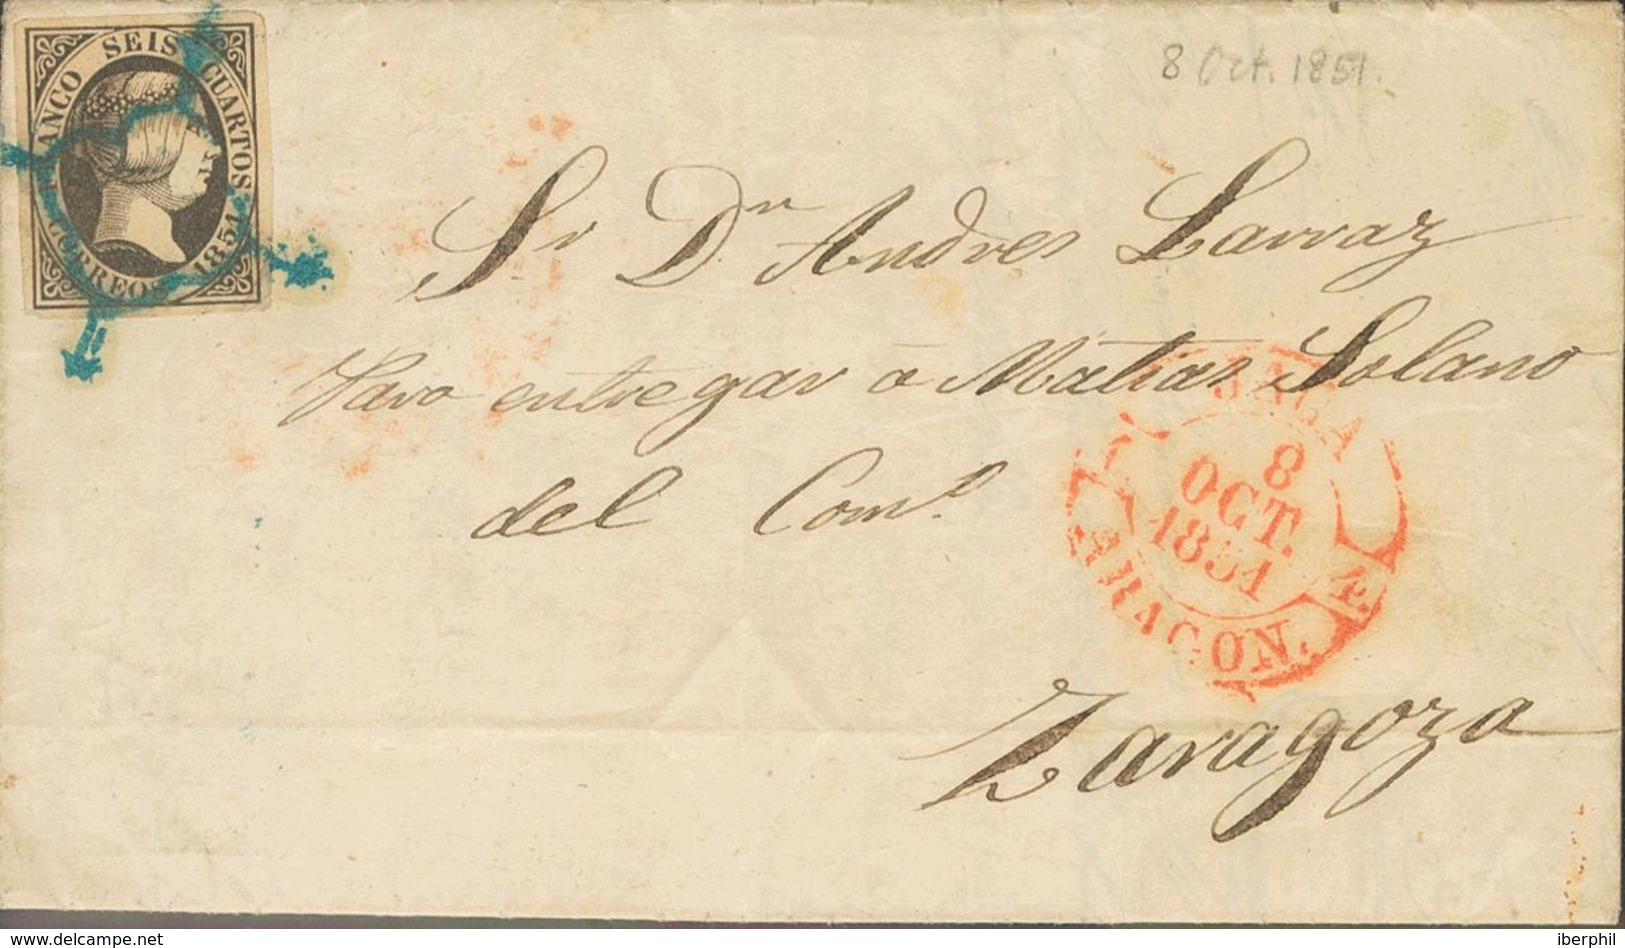 FRANCO SEIS CUARTOS
CORREOS 1851
8 Oct. 1851.
Sr Dn Andres Larraz
Para entregar a Matias Solano
del Comº.
JACA
8
OCT.
1851
4.
ARAGON.
Zaragoza
www.delcampe.net
iberphil